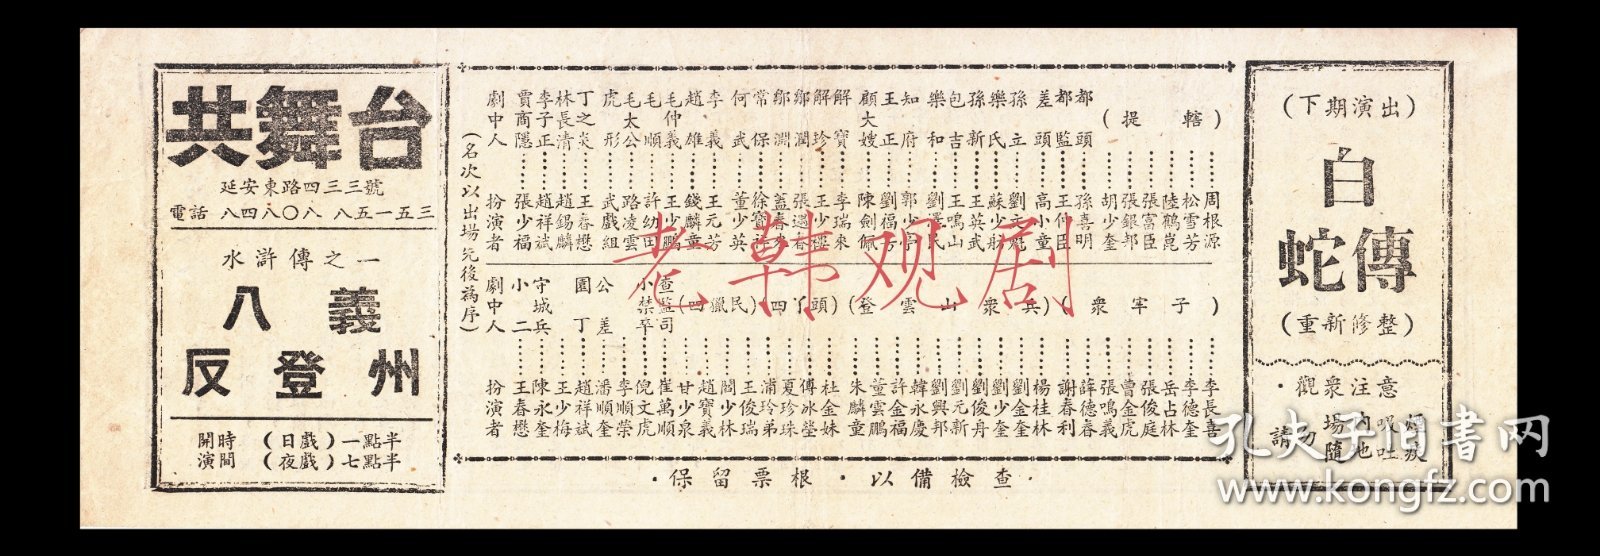 共舞台
延安東路四三三號
電話 八四八〇八 八五一五三
水滸傳之一
八義
反登州
開演時間 (日戲)一點半
(夜戲)七點半
劇中人 扮演者
(名次以出場先後為序)
賈商隱……張少福
李子正……趙祥斌
林長清……趙錫麟
丁之炎……王春懋
虎形……武戲組
毛太公……路凌雲
毛順……許幼田
毛仲義……王少鵬
趙雄……錢麟童
李義……王元芳
何武……董少英
常保……徐寶祥
鄒淵……藍春來
鄒潤……張遇春
解珍……王少樓
解寶……李瑞來
顧大嫂……陳劍佩
王正……劉福芳
知府……郭少亭
樂和……劉澤民
包吉……王鳴山
孫新……王英武
樂氏……蘇少舫
孫立……劉文魁
差頭……高小童
都監……王仲臣
都頭……孫喜明
(提轄)
胡少奎
張銀邦
張富臣
陸鶴崑
松雪芳
周根源
劇中人 扮演者
小二……王春懋
守城兵……陳永奎
王少梅
園丁……趙祥試
公差……潘順奎
李順榮
小禁卒……倪文虎
查監司……崔萬順
(四獵民)
甘少泉
趙寶義
閻少林
王俊瑞
(四丫頭)
浦玲弟
夏珍珠
傅冰瑩
杜金妹
(登雲山衆兵)
朱麟童
董雲鵬
許金福
韓永慶
劉興邦
劉元新
劉俊舟
劉少奎
劉金奎
楊桂林
(衆牢子)
謝春利
薛德春
張鳴義
曹金虎
張俊庭
岳占林
李德奎
李長喜
·保留票根·以備檢查·
(下期演出)
白
蛇傳
(重新修整)
·觀衆注意
請勿場內吸煙
隨地吐痰
老韩观剧
孔夫子旧書网
www.kongfz.com